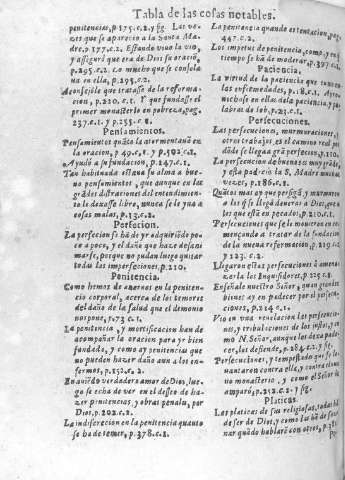 Tabla de las cosas notables.
penitencias, p.175.c.2. y sig. Las ve-
zes que se aparecio a la Santa Ma-
dre, p.177.c.2. Estando viua la vio,
y assegurò que era de Dios su oraciō,
p.295.c.2. Lo mucho que se consola
ua en ella, p.295.c.2.
Aconsejole que tratasse de la reforma-
cion, p.210.c.1. Y que fundasse el
primer monasterio en pobreza, pag.
237.c.1. y p.255.c.2.
Pensamientos.
Pensamientos quāto la atormentauā en
la oracion, p.49.c.1. y p.302.c.2.
Ayudò a su fundacion, p.247.c.1.
Tan habituada estaua su alma a bue-
nos pensamientos, que aunque en las
grādes distracciones del entendimien-
to le dexasse libre, nunca se le yua a
cosas malas, p.13.c.2.
Perfecion.
La perfecion se hà de yr adquiriēdo poco
a poco, y el daño que haze desani
marse, porque no pudan luego quitar
todas las imperfecciones, p.210.
Penitencia.
Como hemos de auernos en la peniten-
cia corporal, acerca de los temores
del daño de la salud que el demonio
nos pone, p.73 c.1.
La penitencia, y mortificacion han de
acompañar la oracion para yr bien
fundado, y como ay penitencias que
no pueden hazer daño aun a los en-
fermos, p.152.c.2.
En auiēdo verdadera amor de Dios, lue-
go se echa de ver en el desseo de ha-
zer penitencias, y obras penales, por
Dios, p.202.c.2.
La indiscrecion en la penitencia quanto
se ha de temer, p.378.c.1.
La penitencia quando es tentacion, pag.
447.c.2.
Los impetus de penitencia, como, y en q̄
tiempo se hā de moderar, p.397.c.1.
Paciencia.
La virtud de la paciencia que tuuo en
las enfermedades, p.18.c.1. Apro-
uechose en ellas de la paciencia, y pa-
labras de Iob, p.23.c.1.
Persecuciones.
Las persecuciones, murmuraciones, y
otros trabajos, es el camino real por
dōde se llega a gran perfeciō, p.210.c.1.
La persecucion de buenos es muy grāde,
y esta padecio la S. Madre muchas
vezes, p.186.c.2.
Quāto mas ay que perseguir y murmurar
a los q̄ se llegā deueras a Dios, que a
los que estā en pecados, p.210.c.1.
Persecuciones que se le mouieron en co-
mençando a tratar de la fundacion
de la nueua reformacion, p.219.c.1.
y 223.c.2.
Llegaron estas persecuciones à amena-
zarla los Inquisidores, p.225.c.2.
Enseñale nuestro Señor, quan grandes
bienes ay en padecer por el persecu-
ciones, p.224.c.1.
Vio en vna reuelacion las persecucio-
nes, y tribulaciones de los justos, y co-
mo N. Señor, aunque los dexa pade-
cer, los defiende, p.284.c.2. y sig.
Persecuciones, y tempestades que se le-
uantaron contra ella, y contra su nue-
uo monasterio, y como el Señor la
amparò, p.212.c.2. y sig.
Platicas.
Las platicas de sus religiosas, todas hā
de ser de Dios, y como las hā de lle-
uar quādo hablarē con otros, p.381